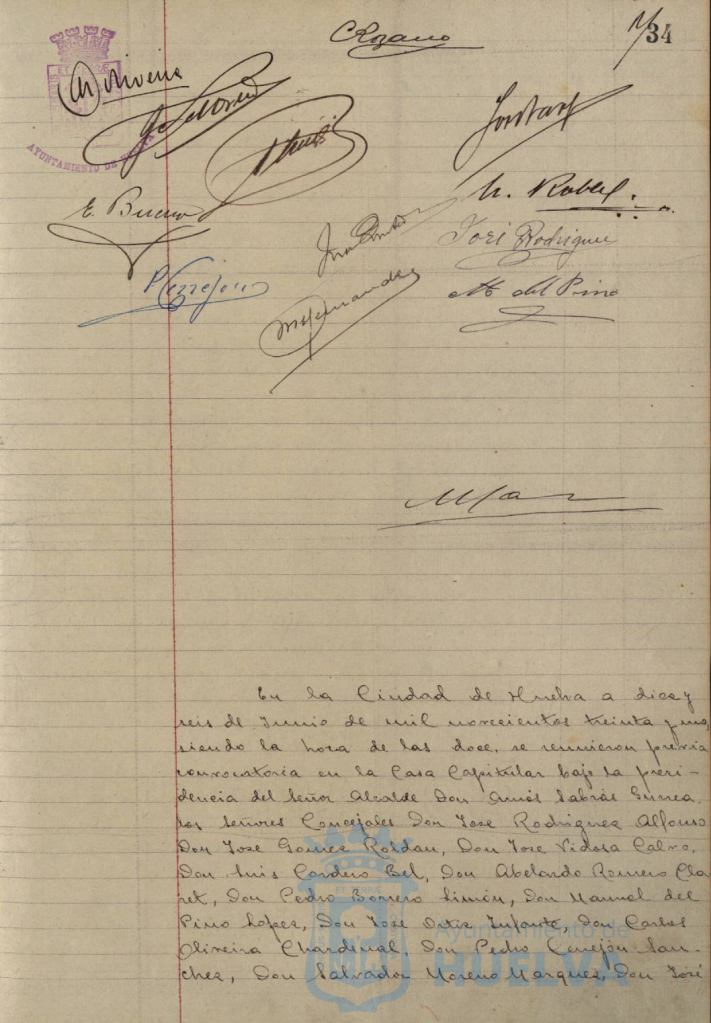 C Rozano
34
AYUNTAMIENTO DE HUELVA
E. Bueno
P Cerrejón
M Fernandez
José Rodriguez
M del Pino
En la Ciudad de Huelva a diez y
seis de Junio de mil novecientos treinta y uno
siendo la hora de las doce, se reunieron previa
convocatoria en la Casa Capitular bajo la presi-
dencia del Señor Alcalde Don Amós Sabrás Gurrea
los Señores Concejales Don Jose Rodriguez Alfonso
Don Jose Gomez Roldan, Don Jose Vidosa Calvo,
Don Luis Cordero Bel, Don Abelardo Romero Cla
ret, Don Pedro Borrero Limón, Don Manuel del
Pino Lopez, Don José Ortiz Infante, Don Carlos
Oliveira Chardenal, Don Pedro Cerrejón San-
chez, Don Salvador Moreno Marquez, Don José
Ayuntamiento de
HUELVA